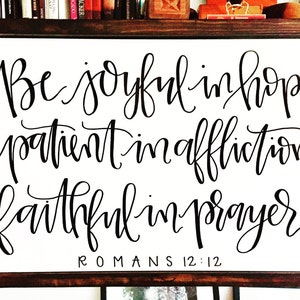 Be joyful in hop
patient in affliction
faithful in prayer
ROMANS 12:12